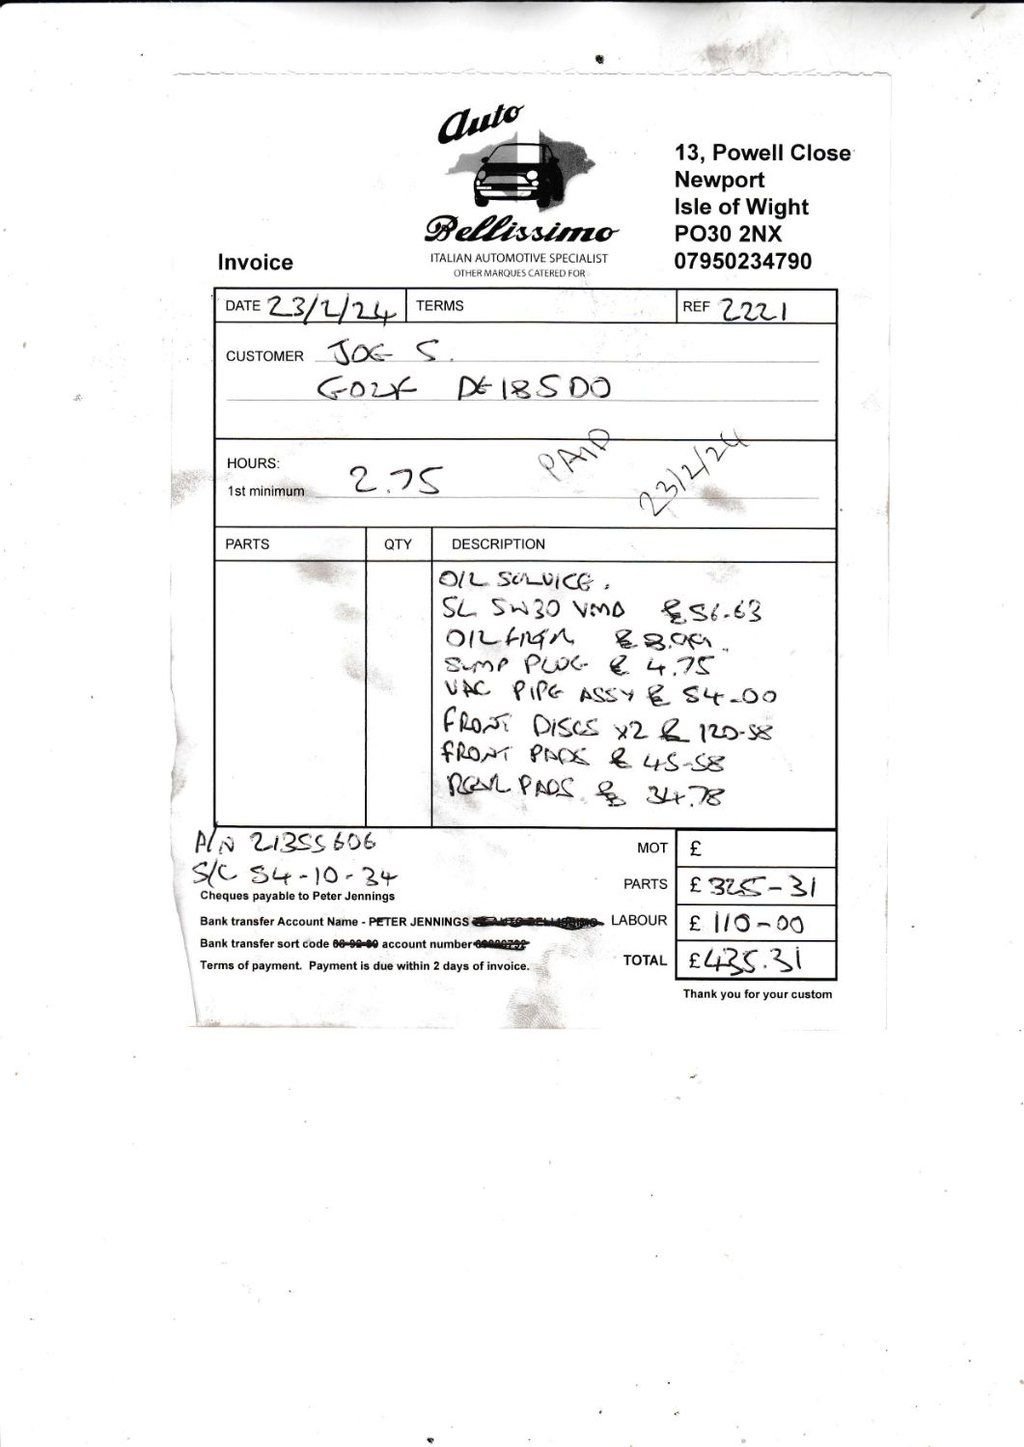 Auto
Bellissimo
ITALIAN AUTOMOTIVE SPECIALIST
OTHER MARQUES CATERED FOR
13, Powell Close
Newport
Isle of Wight
PO30 2NX
07950234790
Invoice
DATE 23/2/24 TERMS REF 2221
CUSTOMER JOE S.
GOLF DE18SDO
HOURS:
1st minimum 2.75
PAID
23/2/24
PARTS QTY DESCRIPTION
OIL SERVICE.
5L 5W30 VMO £56.63
OIL FILTER £8.99.
SUMP PLUG £4.75
VAC PIPE ASSY £54-00
FRONT DISCS x2 £120-58
FRONT PADS £45-58
REAR PADS. £34.78
A/N 21355606
S/C 54-10-34
Cheques payable to Peter Jennings
Bank transfer Account Name - PETER JENNINGS
Bank transfer sort code account number
Terms of payment. Payment is due within 2 days of invoice.
MOT £
PARTS £325-31
LABOUR £110-00
TOTAL £435.31
Thank you for your custom